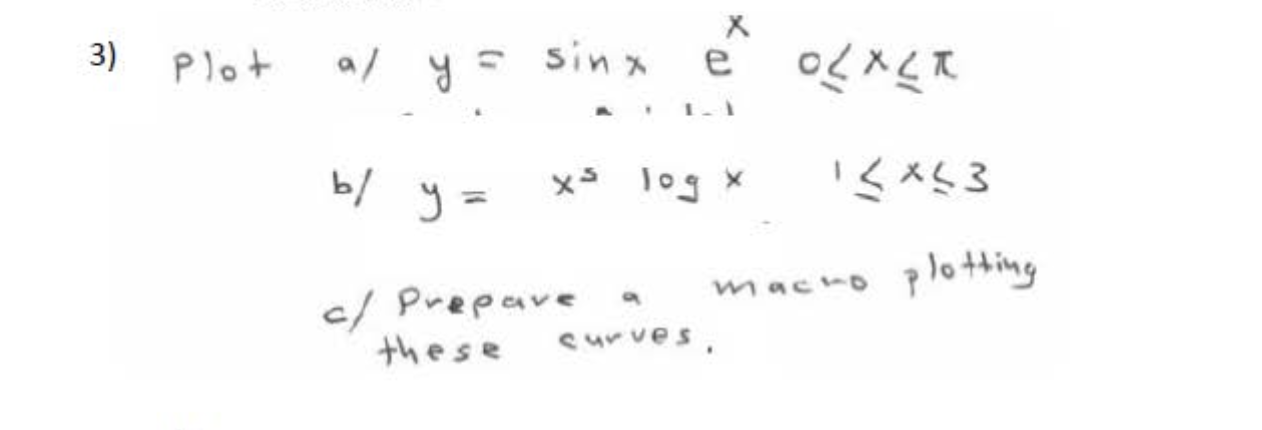 3) Plot a/ y = sin x e^x 0≤x≤π
b/ y = x^5 log x 1≤x≤3
c/ Prepare a macro plotting
these curves.